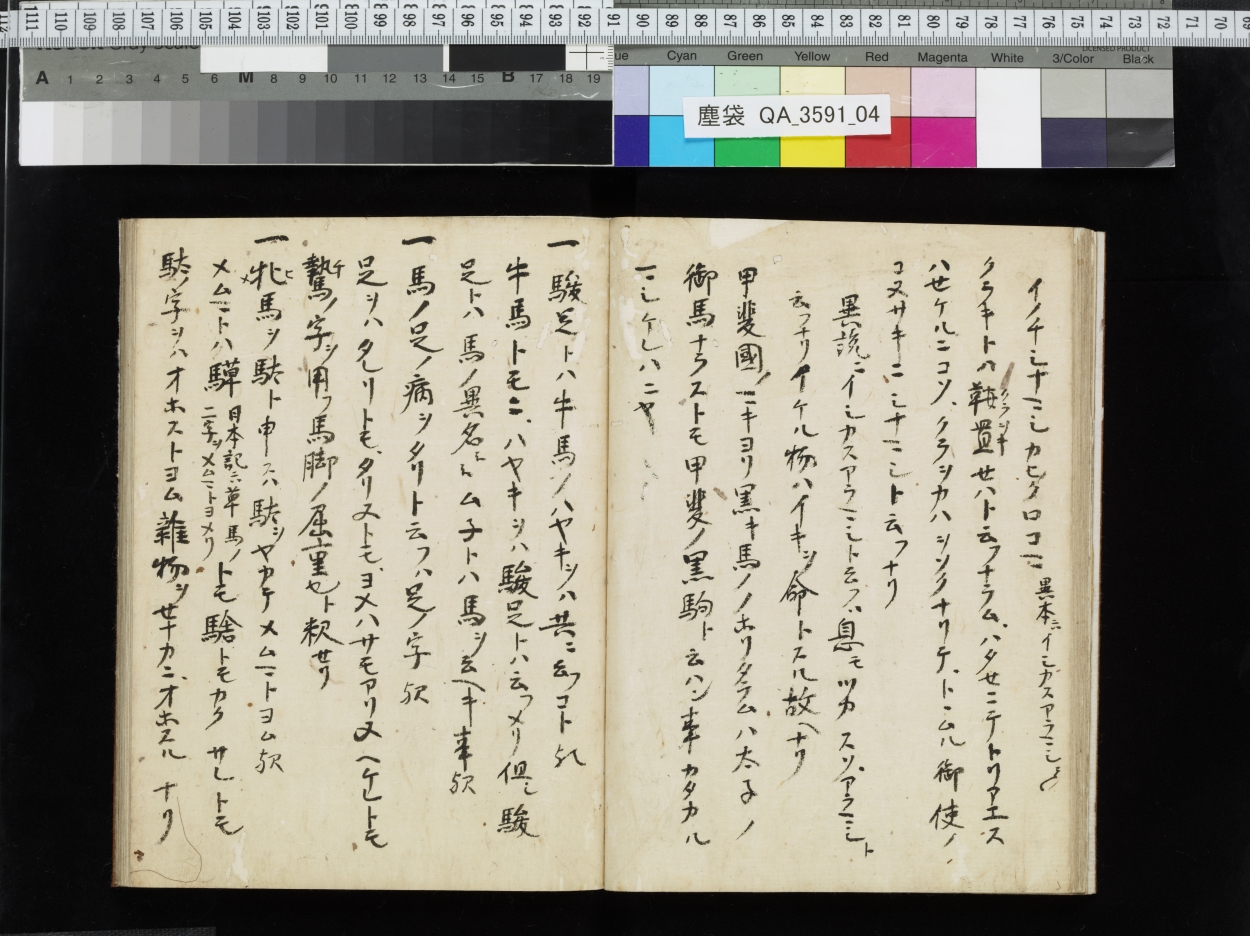 塵袋 QA_3591_04
Cyan Green Yellow Red Magenta White 3/Color Black
LICENSED PRODUCT
A 1 2 3 4 5 6 M 8 9 10 11 12 13 14 15 B 17 18 19
イノチシナマシカヒクロコマ 異本ニイシカスアラマシ
クラキトハ鞍置セハト云フナラム、ハタセニテトリアエス
ハセケルニコソ、クラシカハシンクナリケ、トムル御使ノ
コヌサキニシナマシト云フナリ
異説ニイシカスアラマシト云フハ息モツカスソアラマシト
云フナリイケル物ハイキヲ命トスル故ヘナリ
甲斐國ノマキヨリ黒キ馬ノノホリタラムハ太子ノ
御馬ナラストモ甲斐ノ黒駒ト云ハン事カタカル
マシケレハニヤ
一駿足トハ牛馬ノハヤキヲハ共ニ云フコト歟
牛馬トモニ、ハヤキヲハ駿足トハ云フメリ但シ駿
足トハ馬ノ異名ニムネトハ馬ヲ云ヘキ事歟
一馬ノ足ノ病ヲタリト云フハ足ノ字歟
足ヲハタレリトモ、タリヌトモ、ヨメハサモアリヌヘケレトモ
騺ノ字ヲ用フ馬脚ノ屈重也ト釈セリ
一牝馬ヲ駄ト申スハ駄ヲヤカテメムマトヨム歟
メムマトハ騲 日本記ニハ草馬ノ二字ヲメムマトヨメリ トモ騇トモカクサレトモ
駄ノ字ヲハオホストヨム雑物ヲセナカニオホスルナリ